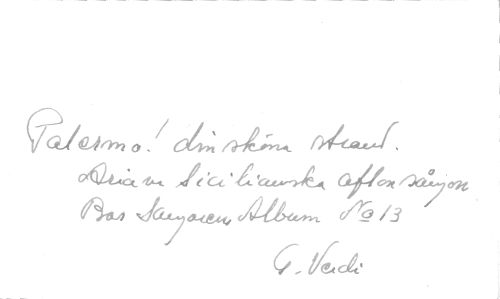 Palermo! din sköna strand.
Aria ur Sicilianska aftonsången
Bas Sångarens Album No 13
G. Verdi